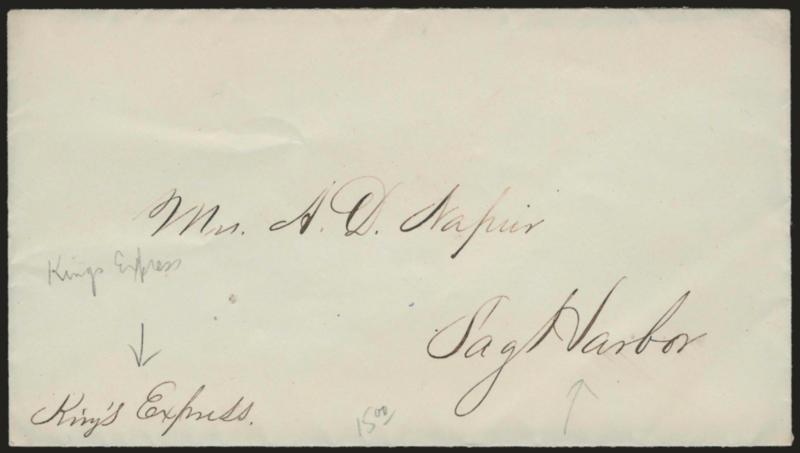 Mrs. A. D. Napier
Kings Express
Sag Harbor
King's Express.
15.00